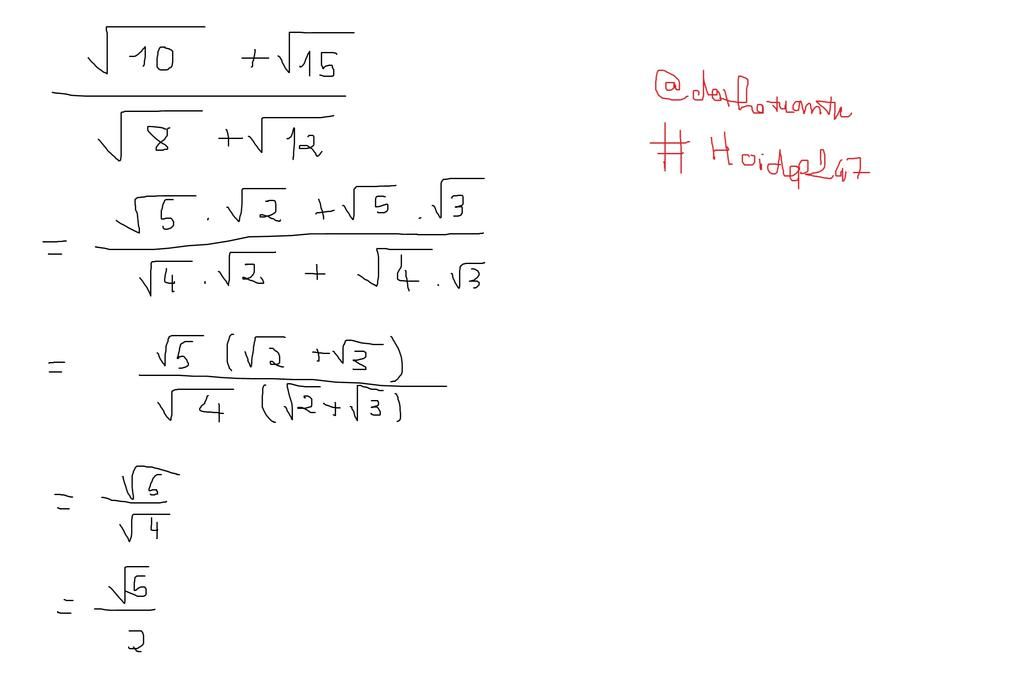 √10 + √15
√8 + √12
= √5 . √2 + √5 . √3
√4 . √2 + √4 . √3
= √5 (√2 + √3)
√4 (√2 + √3)
= √5
√4
= √5
2
# Hoidap247